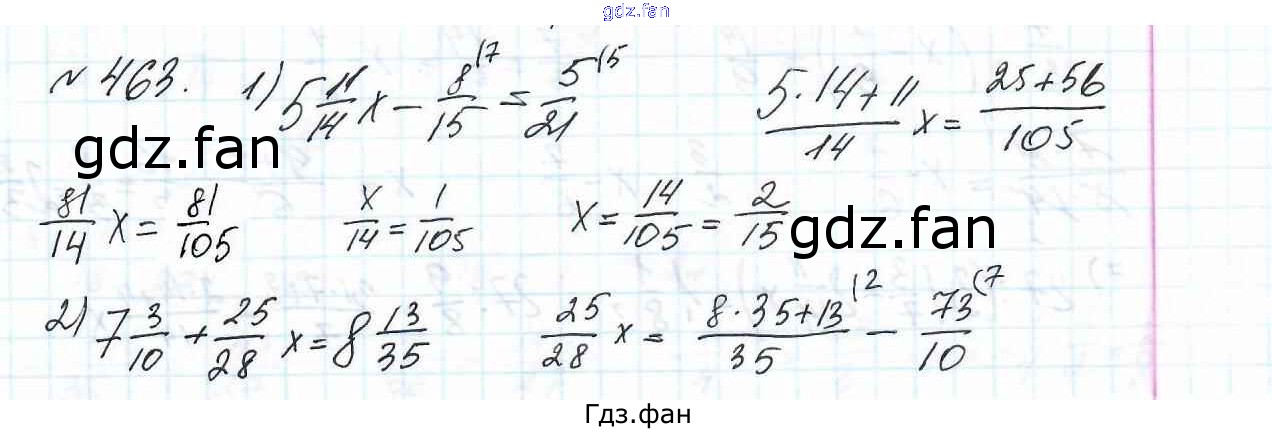 gdz.fan
№ 463. 1) 5 11/14 x - 8/15 (7 = 5/21 (5    (5·14+11)/14 x = (25+56)/105
gdz.fan
81/14 x = 81/105    x/14 = 1/105    x = 14/105 = 2/15
gdz.fan
2) 7 3/10 + 25/28 x = 8 13/35    25/28 x = (8·35+13)/35 (2 - 73/10 (7
Гдз.фан